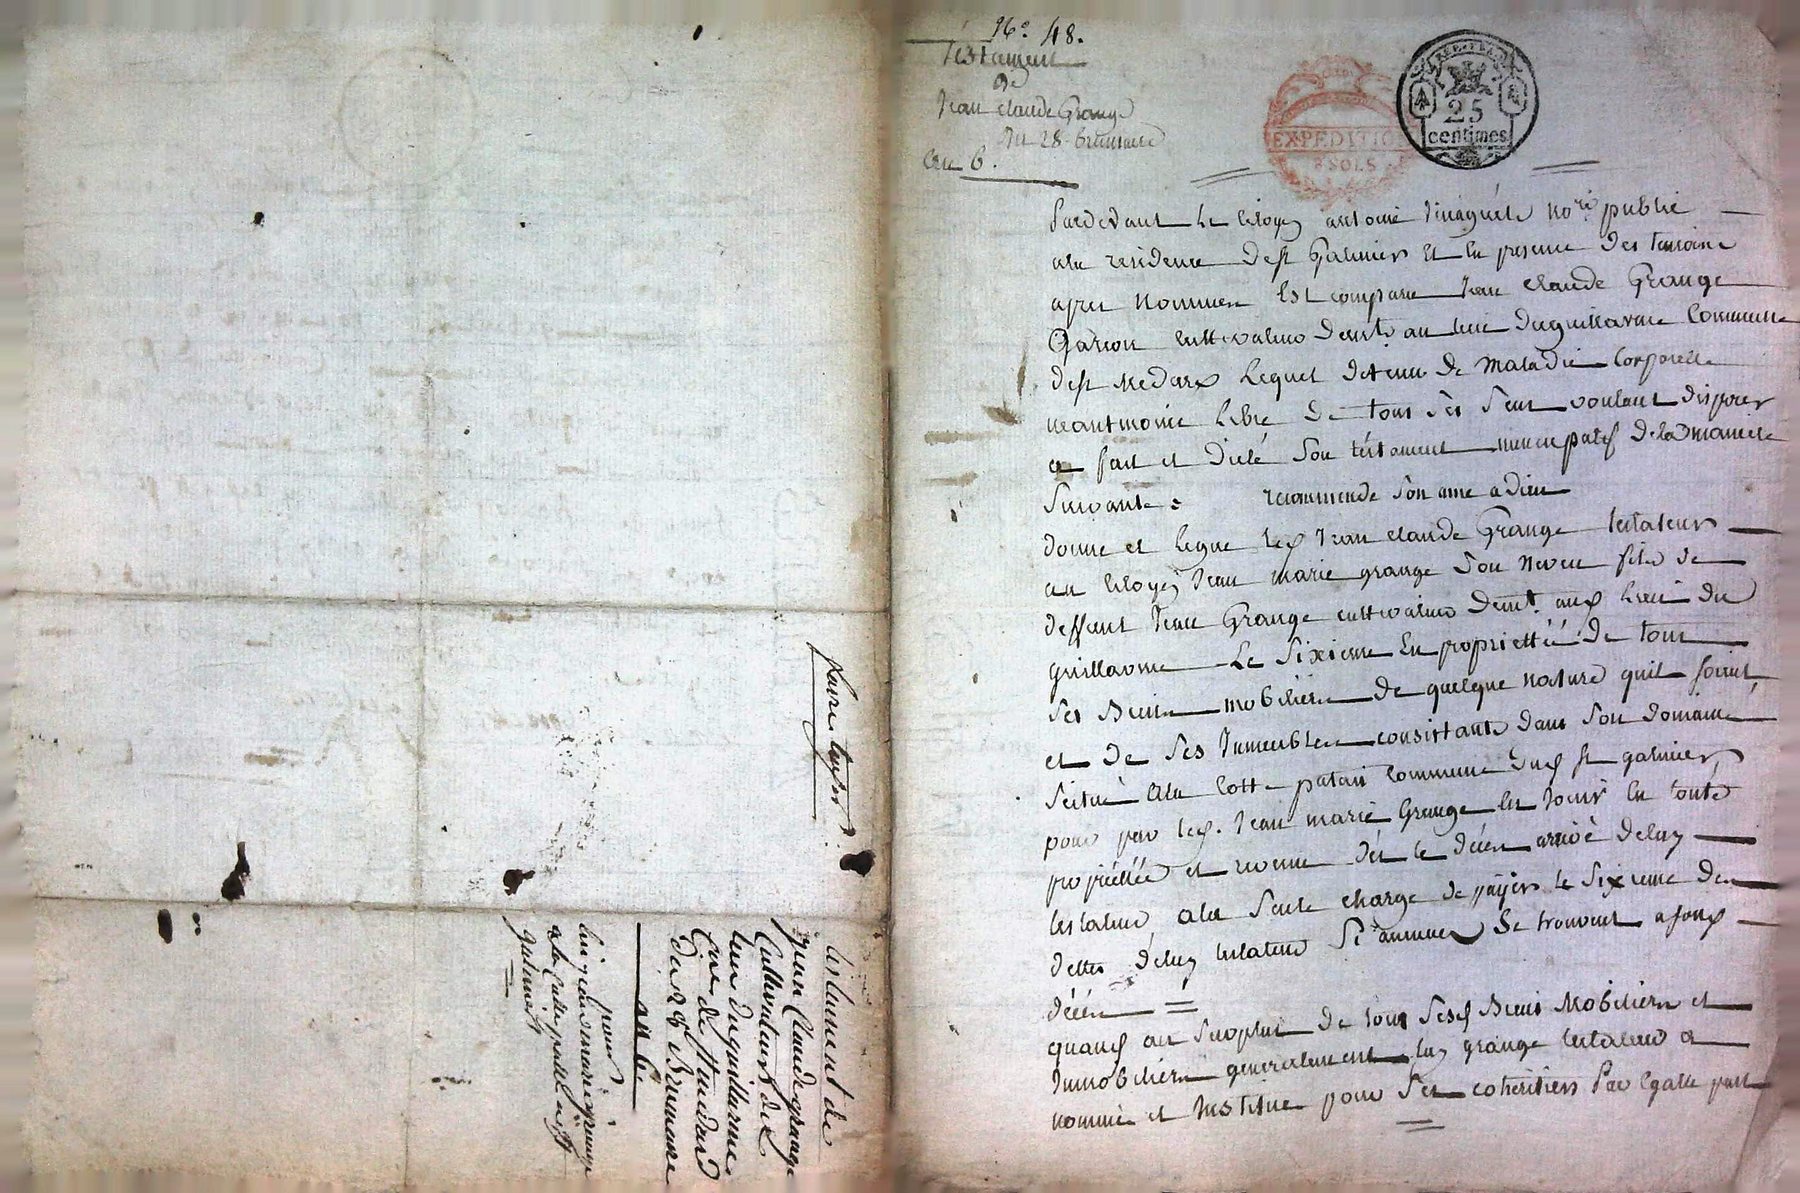 N.° 48.
Testament
De
Jean Claude Grange
Du 28 brumaire
an 6.
EXPEDITION
SOLS
REP. FRA.
25
centimes
Pardevant le Citoyen antoine no.re public
ala residence de st Galmier Et En presence des temoins
apres Nommes Est comparu Jean Claude Grange
Garçon Cultivateur demt au lieu duguillarme Commune
de st Medard Lequel detenu de Maladie Corporelle
neantmoins Libre De tous ses sens voulant disposer
a fait et dicté Son testament nuncupatif dela maniere
Suivante : recommende Son ame a dieu
donne et legue led Jean Claude Grange testateur
au Citoyen Jean marie grange Son Neveu fils de
deffunt Jean Grange cultivateur demt. aud Lieu du
guillarme Le Sixieme En proprietté De tous
ses Biens mobiliers de quelque nature quil soient
et de Ses Immeubles consistants dans Son domaine
scitué Ala Cotte patait Commune dud st galmier
pour par led. Jean marie Grange En Jouir En toute
proprietté et revenu dès le décès arrivé deluy
testateur, ala seule charge de payer le Sixieme des
dettes deluy testateur Si aucunes Se trouvent asond
décès
quand au Surplus de tous sesd Biens Mobiliers et
Immobiliers generalement luy grange testateur a
nommé et Institue pour Ses coheritiers Par Egalle part
testament de
jean Claude grange
Cultivateurs de
lieu duguillarme
de st medard
Du 28 Brumaire
an 6.
pour
jean marie grange
ala
galmier